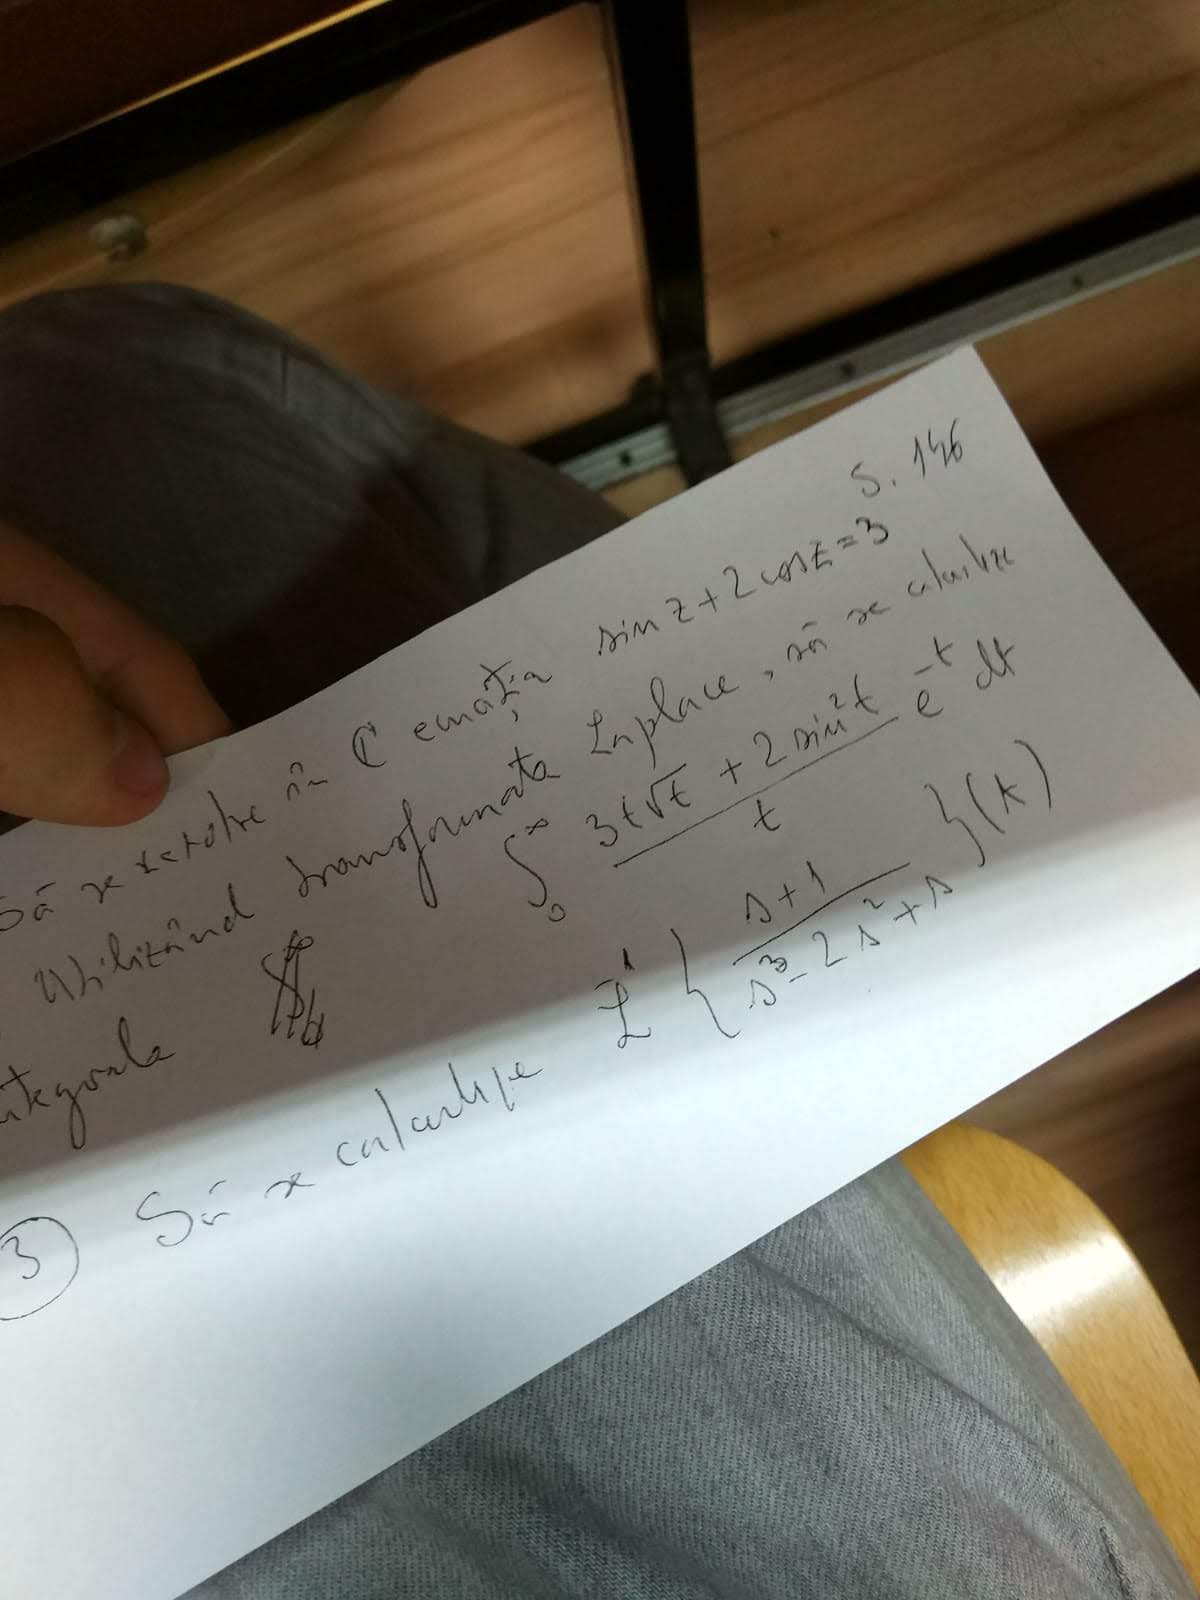 S. 146
Să se rezolve în ℂ ecuația sin z + 2 cos z = 3
Utilizând transformata Laplace, să se calculeze
integrala ∫₀^∞ (3t√t + 2 sin²t)/t e^(-t) dt
③ Să se calculeze L⁻¹ { (s+1)/(s³ - 2s² + s) }(t)